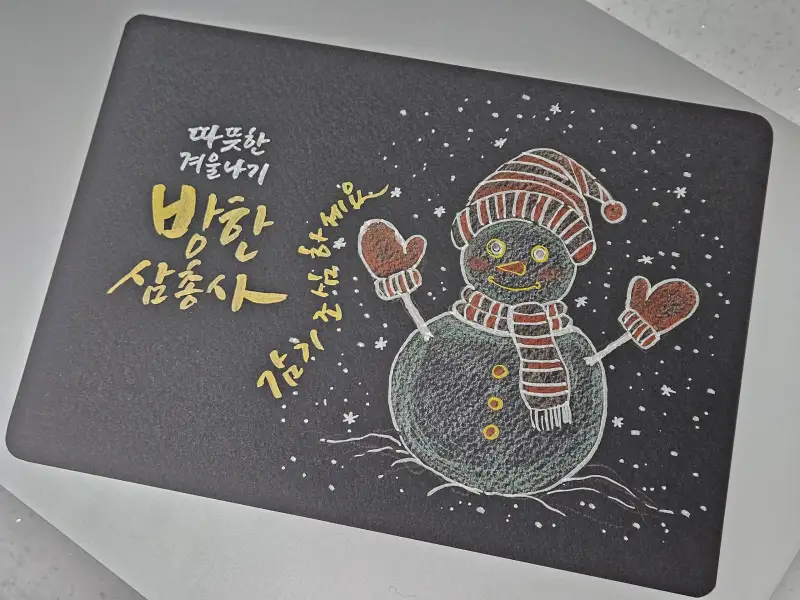 따뜻한
겨울나기
방한
삼총사
감기 조심하세요